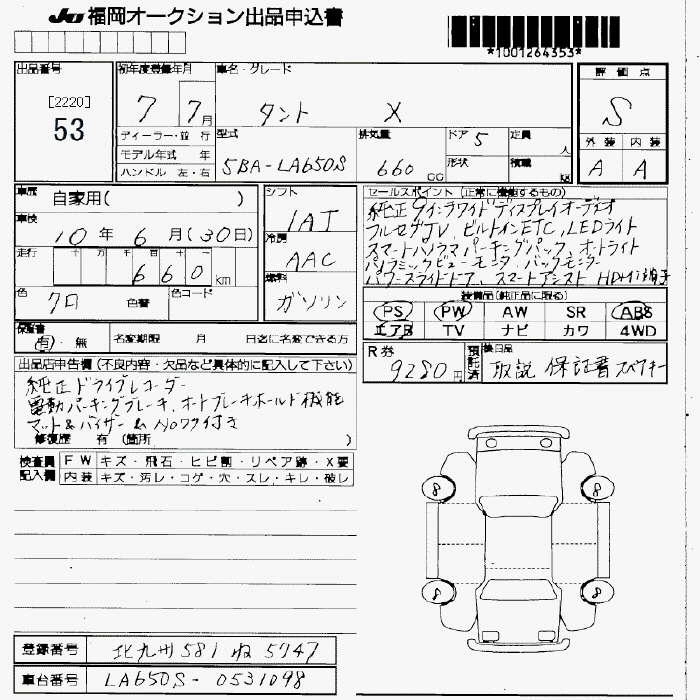 JU 福岡オークション出品申込書
*1001264353*
出品番号
[2220]
53
初年度登録年月
7 7月
車名・グレード
タント X
評価点
S
外装 内装
A A
ディーラー・並行
モデル年式 年
ハンドル 左・右
型式
5BA-LA650S
排気量
660 CC
ドア 5
形状
定員 人
積載 kg
車歴
自家用( )
車検
10年 6月(30日)
走行
十 万 千 百 十
660 km
色
クロ
色替
色コード
シフト
IAT
冷房
AAC
燃料
ガソリン
セールスポイント (正常に機能するもの)
純正9インチワイドディスプレイオーディオ
フルセグTV、ビルトインETC、LEDライト
スマートパノラマパーキングパック、オートライト
パノラミックビューモニタ、バックモニター
パワースライドドア、スマートアシスト HDMI端子
装備品(純正品に限る)
PS PW AW SR ABS
エアB TV ナビ カワ 4WD
保証書
有・無
名変期限 月 日迄に名変できる方
R券
9280円
預託済
後日品
取説 保証書 スペアキー
出品店申告欄(不良内容・欠品など具体的に記入して下さい)
純正ドライブレコーダー
電動パーキングブレーキ、オートブレーキホールド機能
マット&バイザー & Noワク付き
修復歴 有 (箇所 )
検査員 FW キズ・飛石・ヒビ割・リペア跡・X要
記入欄 内装 キズ・汚レ・コゲ・穴・スレ・キレ・破レ
8 8
8 8
登録番号 北九州 581 ね 5747
車台番号 LA650S-0531098